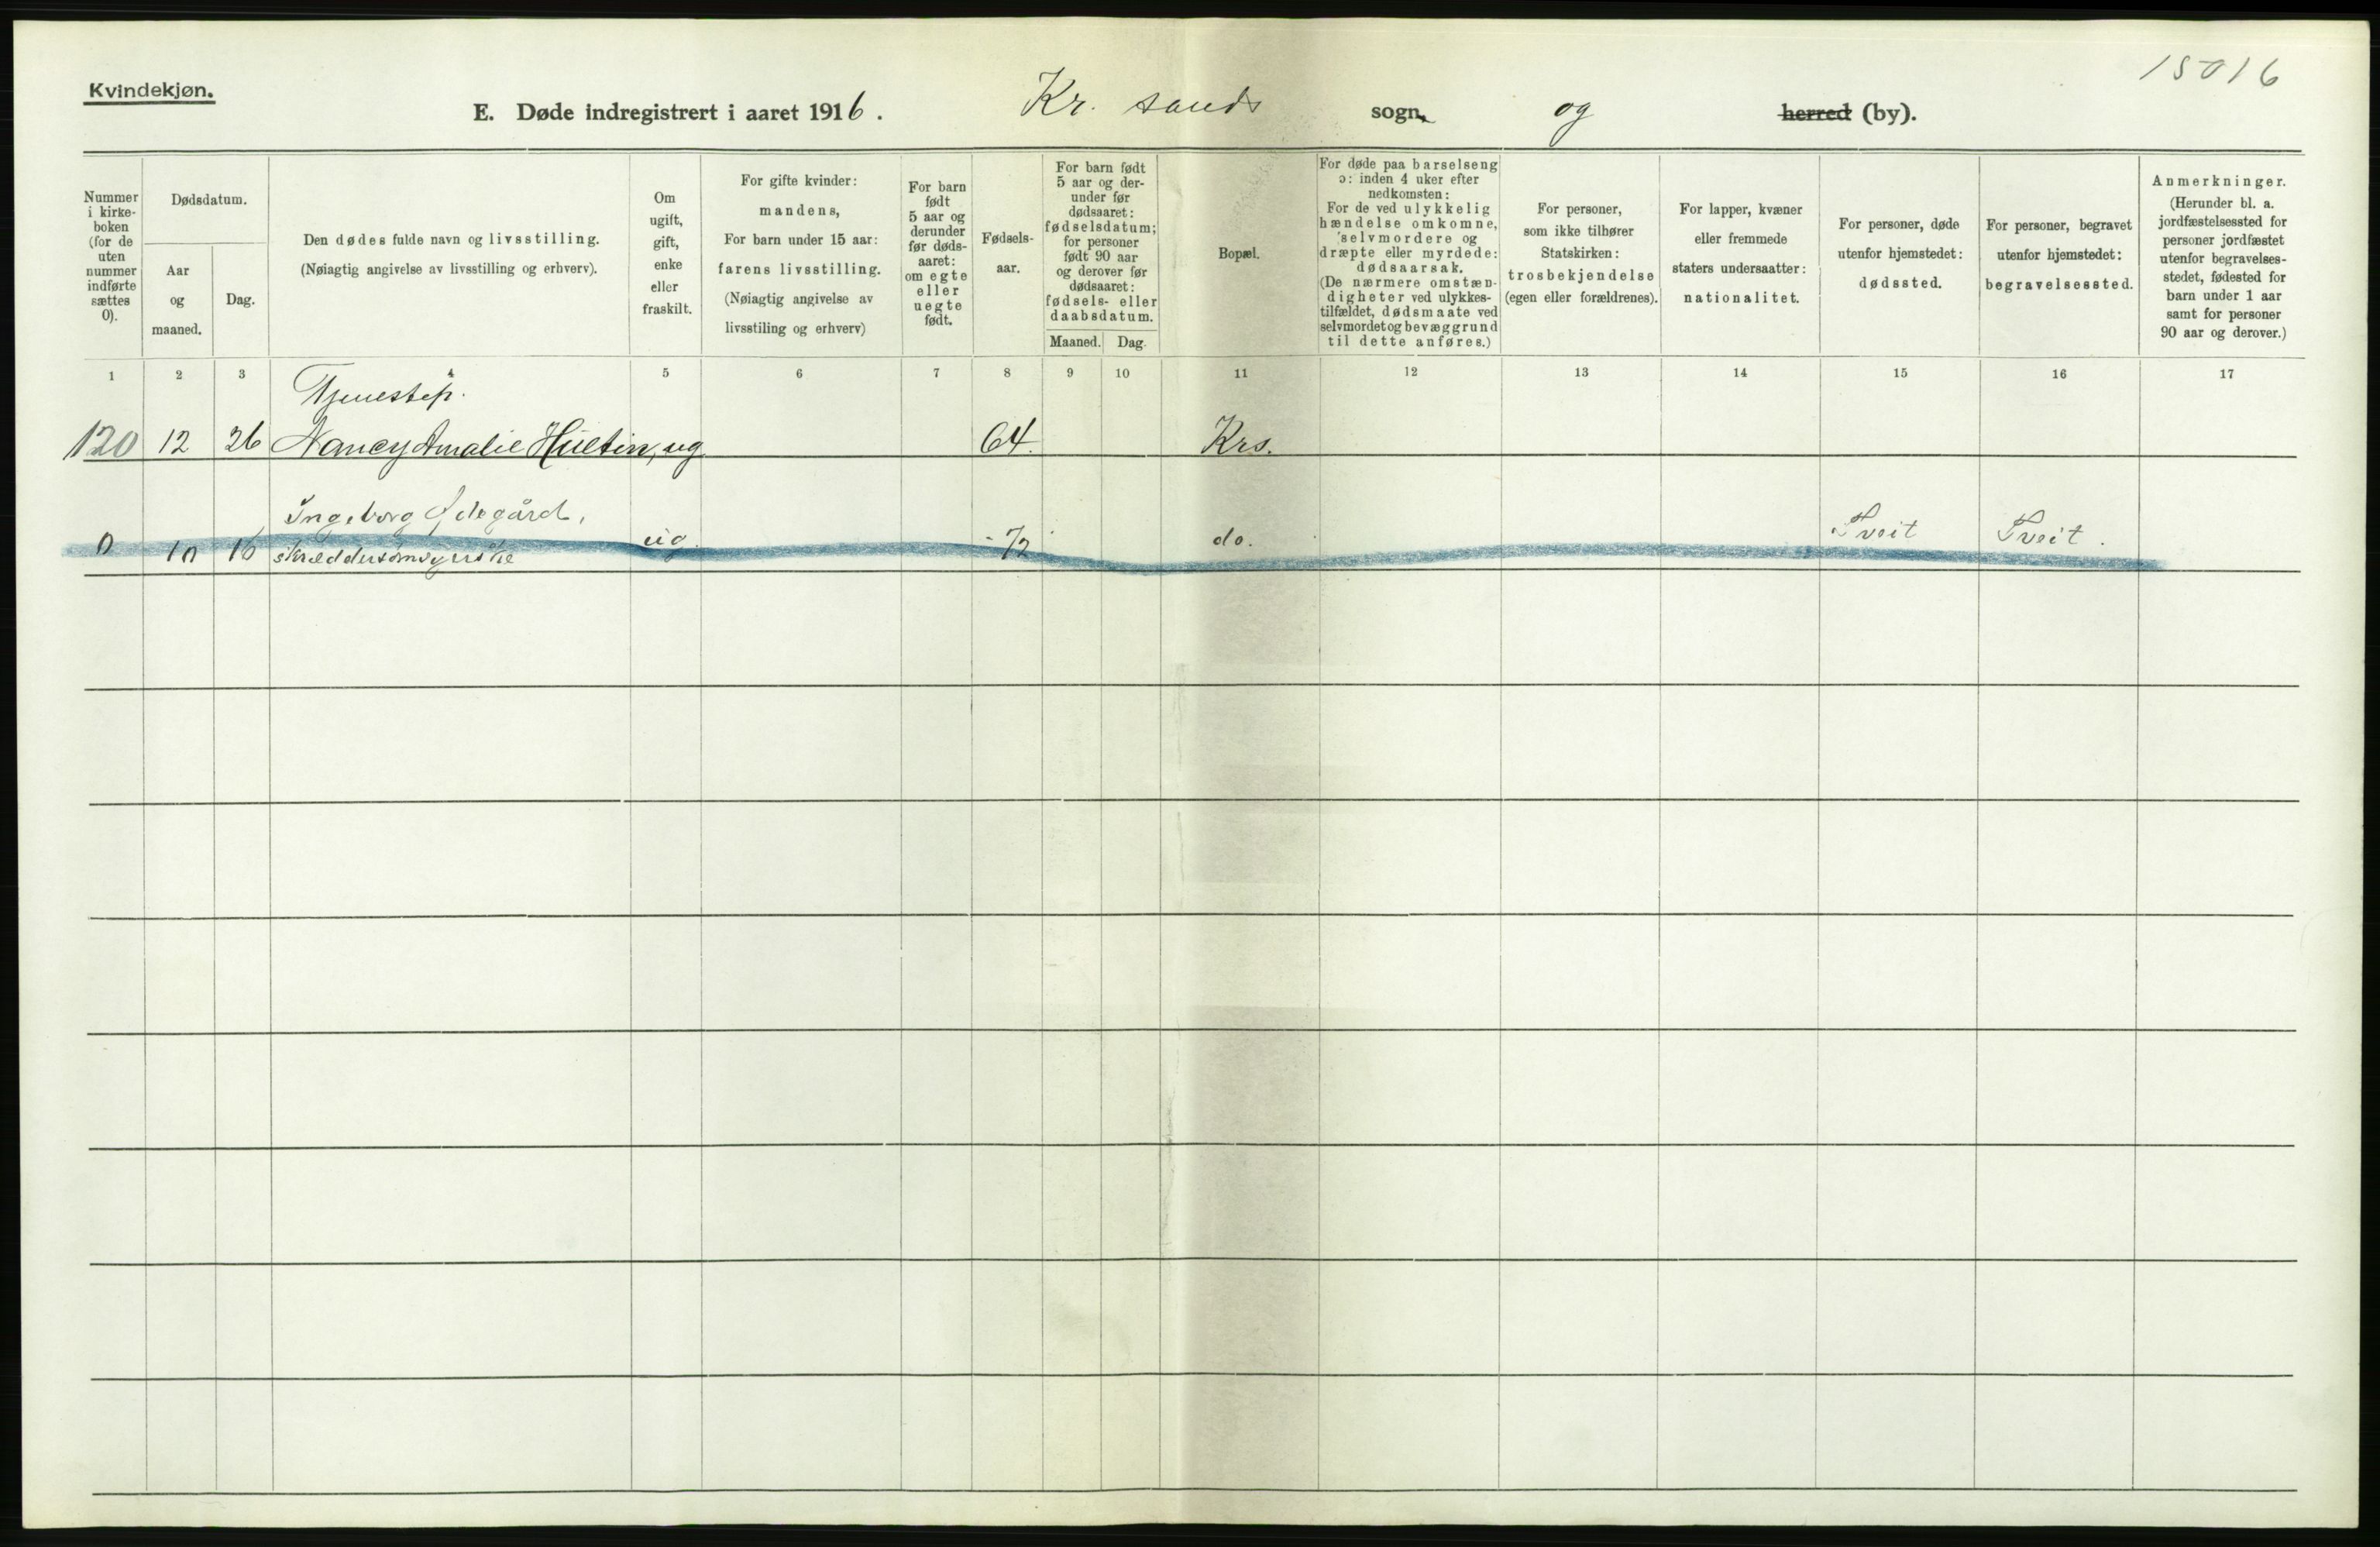 Kvindekjøn.
15016
E. Døde indregistrert i aaret 1916. Kr. sands sogn og herred (by).
Nummer i kirkeboken (for de uten nummer indførte sættes 0).
Dødsdatum.
Aar og maaned.
Dag.
Den dødes fulde navn og livsstilling.
(Nøiagtig angivelse av livsstilling og erhverv).
Om ugift, gift, enke eller fraskilt.
For gifte kvinder: mandens,
For barn under 15 aar: farens livsstilling.
(Nøiagtig angivelse av livsstiling og erhverv)
For barn født 5 aar og derunder før dødsaaret: om egte eller uegte født.
Fødselsaar.
For barn født 5 aar og derunder før dødsaaret: fødselsdatum; for personer født 90 aar og derover før dødsaaret: fødsels- eller daabsdatum.
Maaned. Dag.
Bopæl.
For døde paa barselseng ɔ: inden 4 uker efter nedkomsten:
For de ved ulykkelig hændelse omkomne, selvmordere og dræpte eller myrdede: dødsaarsak.
(De nærmere omstændigheter ved ulykkestilfældet, dødsmaate ved selvmordet og bevæggrund til dette anføres.)
For personer, som ikke tilhører Statskirken: trosbekjendelse (egen eller forældrenes).
For lapper, kvæner eller fremmede staters undersaatter: nationalitet.
For personer, døde utenfor hjemstedet: dødssted.
For personer, begravet utenfor hjemstedet: begravelsessted.
Anmerkninger.
(Herunder bl. a. jordfæstelsessted for personer jordfæstet utenfor begravelsesstedet, fødested for barn under 1 aar samt for personer 90 aar og derover.)
1 2 3 4 5 6 7 8 9 10 11 12 13 14 15 16 17
Tjenestep.
120 12 26 Nancy Amalie Hultin, ug 64. Krs.
Ingeborg Ødegård,
0 10 16 skræddersømsyerske ug. 72 do. Tveit Tveit.